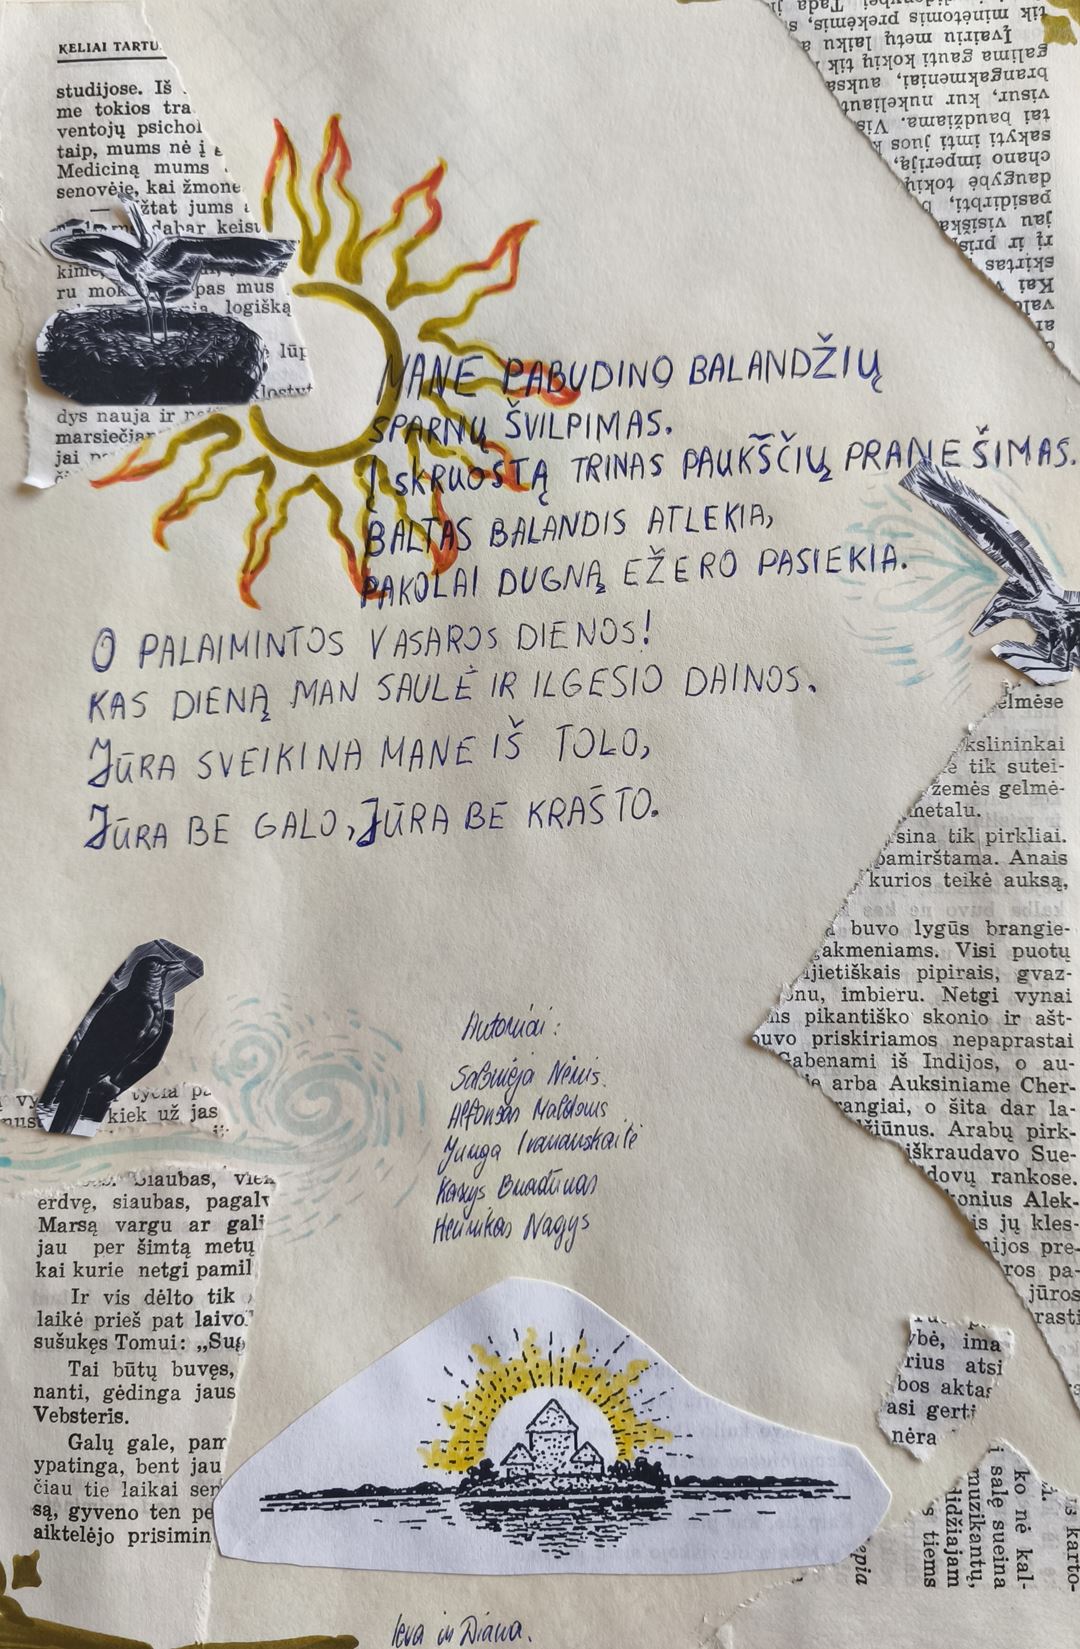 KELIAI TARTU
studijose. Iš
me tokios tra
ventojų psichol
taip, mums nė į
Mediciną mums
senovėje, kai žmone
žtat jums
dabar keisu
kime,
ru mok pas mus
logišką
lūp
klostyt
dys nauja ir
marsiečiar
jai
tik minėtomis prekėmis, s
Įvairiu metų laiku a
galima gauti kokių tik
brangakmeniai, auksa
visur, kur nukeliaut
tai baudžiama. Vis
sakyti imti juos k
chano imperiją,
daugybė tokių
pasidirbti, b
jau visiška
rį ir pris
skirtas
Kai v
valo
MANE PABUDINO BALANDŽIŲ
SPARNŲ ŠVILPIMAS.
Į SKRUOSTĄ TRINAS PAUKŠČIŲ PRANEŠIMAS.
BALTAS BALANDIS ATLEKIA,
PAKOLAI DUGNĄ EŽERO PASIEKIA.
O PALAIMINTOS VASAROS DIENOS!
KAS DIENĄ MAN SAULĖ IR ILGESIO DAINOS.
JŪRA SVEIKINA MANE IŠ TOLO,
JŪRA BE GALO, JŪRA BE KRAŠTO.
elmėse
kslininkai
tik sutei-
žemės gelmė-
metalu.
sina tik pirkliai.
pamirštama. Anais
kurios teikė auksą,
buvo lygūs brangie-
akmeniams. Visi puotų
ijietiškais pipirais, gvaz-
onu, imbieru. Netgi vynai
ms pikantiško skonio ir ašt-
ouvo priskiriamos nepaprastai
Gabenami iš Indijos, o au-
arba Auksiniame Cher-
rangiai, o šita dar la-
džiūnus. Arabų pirk-
iškraudavo Sue-
dovų rankose.
konius Alek-
is jų kles-
nijos pre-
ros pa-
jūros
rasti
Autoriai:
Salomėja Nėris.
Alfonsas Maldonis
Jurga Ivanauskaitė
Kazys Bradūnas
Henrikas Nagys
vy tyčia pa
must kiek už jas
Siaubas, vien
erdvę, siaubas, pagalv
Marsą vargu ar gali
jau per šimtą metų
kai kurie netgi pamil
Ir vis dėlto tik
laikė prieš pat laivo
sušukęs Tomui: „Sug
Tai būtų buvęs,
nanti, gėdinga jaus
Vebsteris.
Galų gale, pam
ypatinga, bent jau
čiau tie laikai ser
są, gyveno ten pe
aiktelėjo prisimin
ybė, ima
rius atsi
bos aktas
asi gerti
nėra
ko nė kal-
į salę sueina
muzikantų,
didžiajam
s tiems
s karto-
epia
Ieva ir Diana.